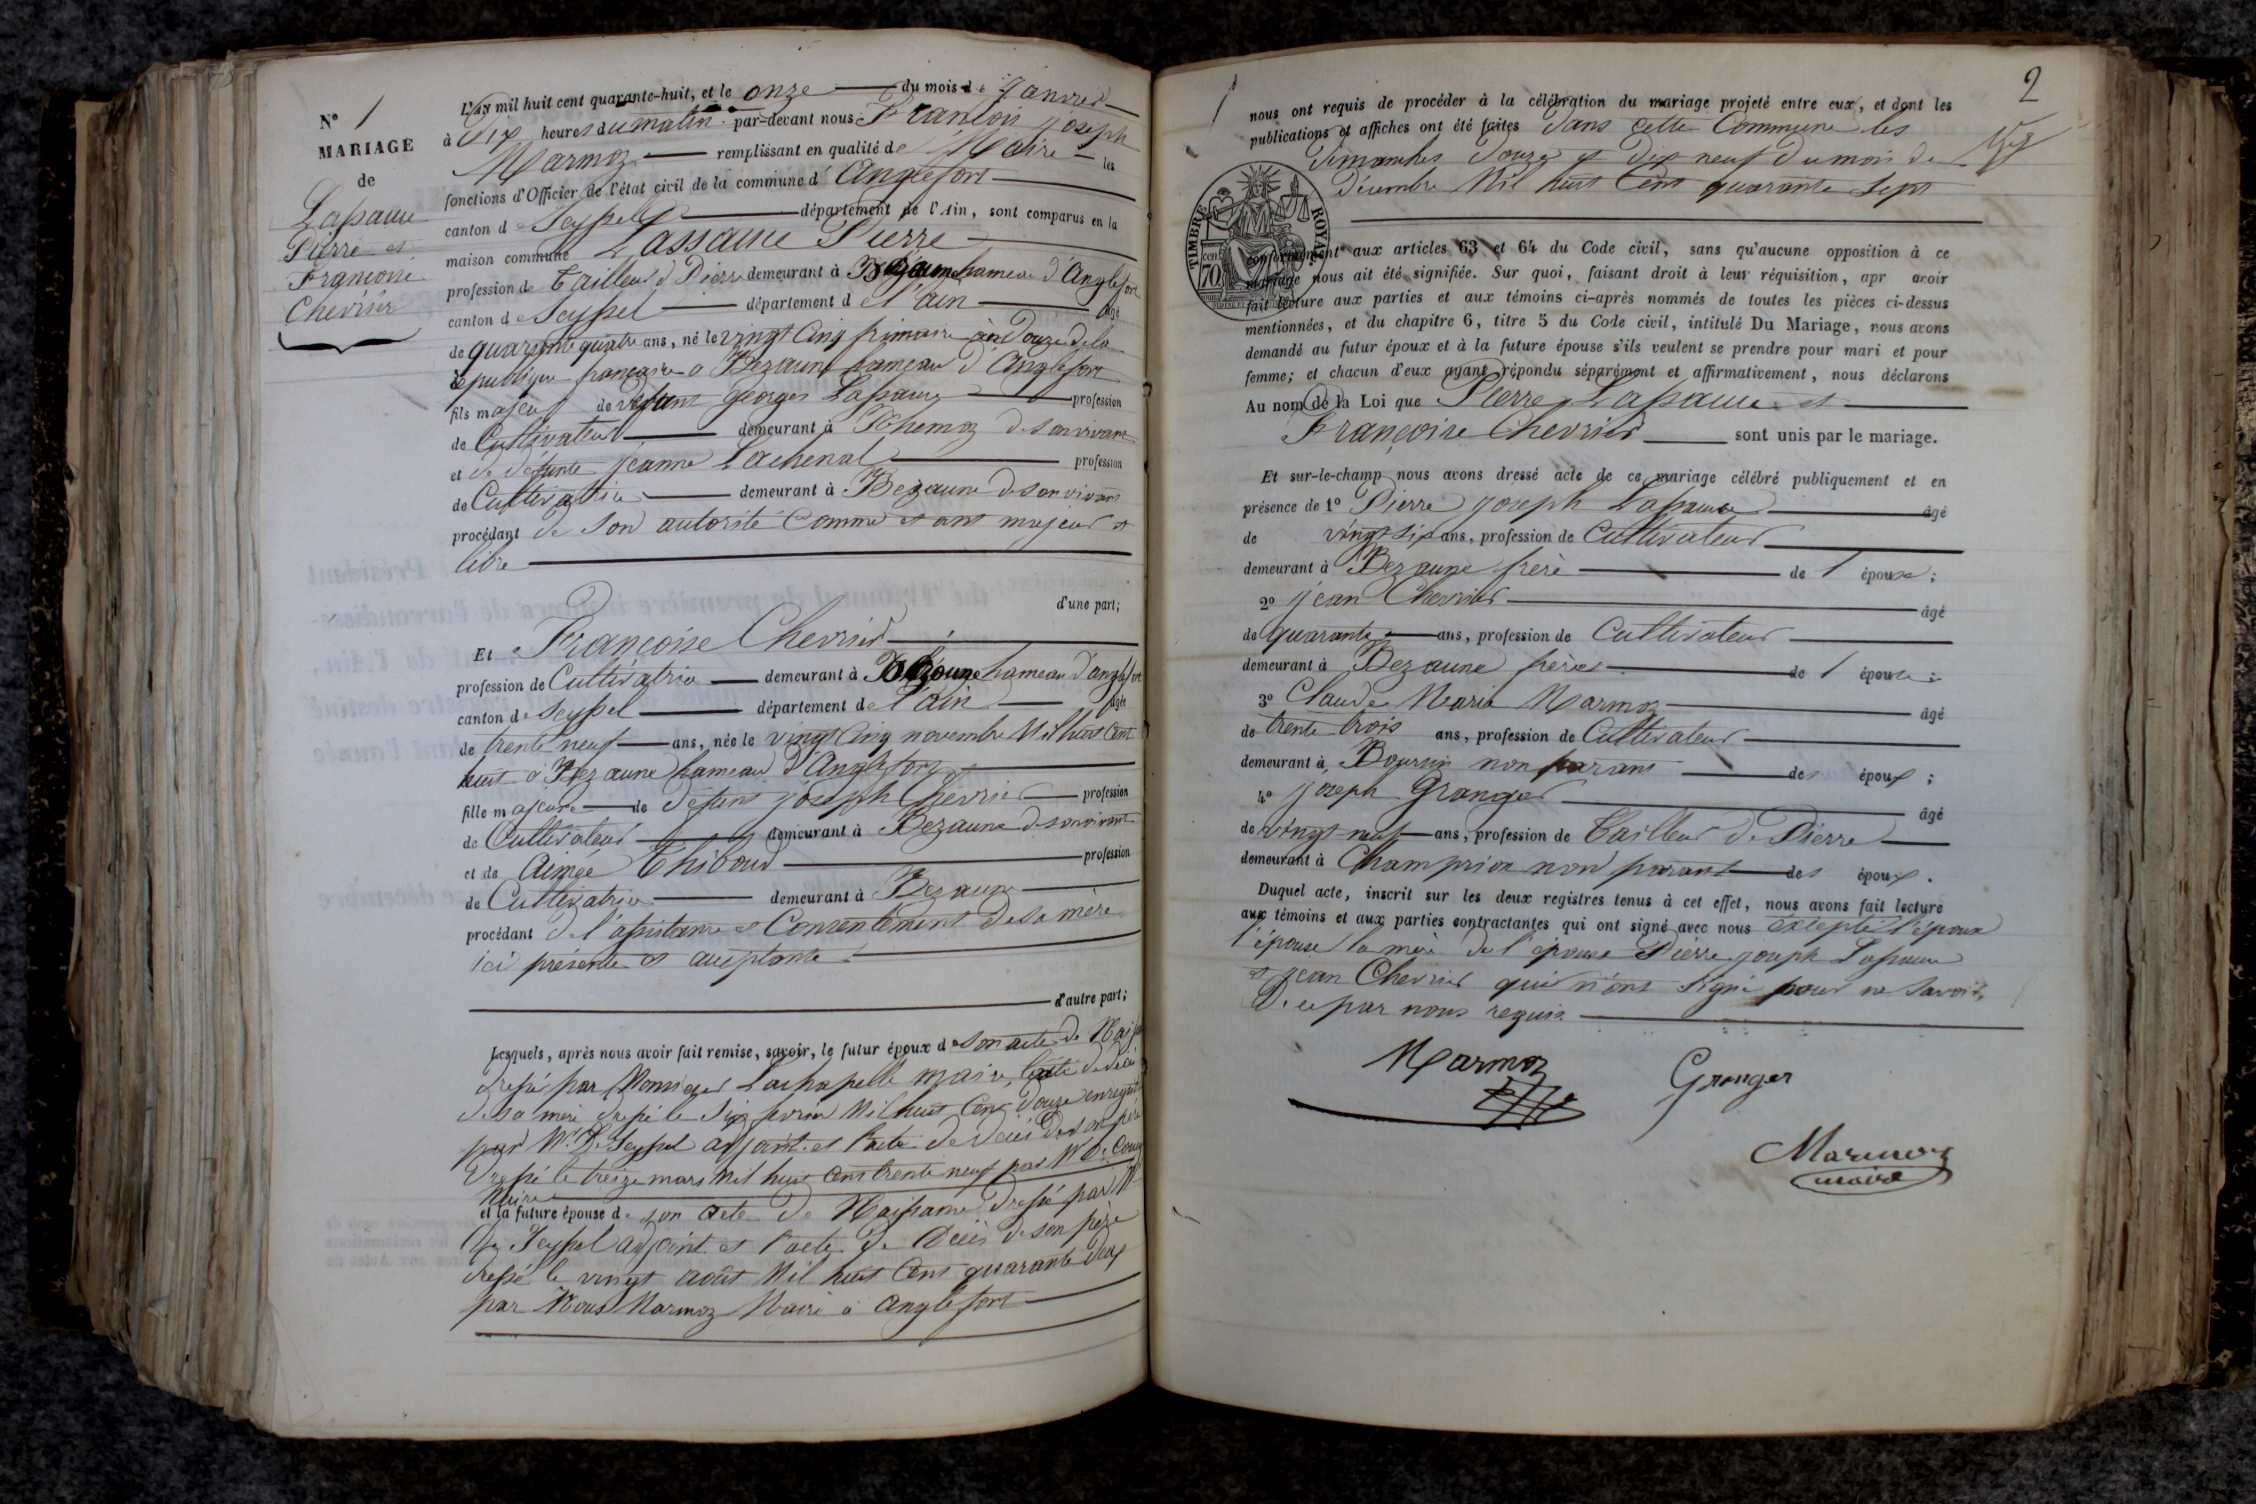 N° 1
MARIAGE
de
Lassaune
Pierre et
Françoise
Chevrier
L'an mil huit cent quarante-huit, et le onze du mois de Janvier
à Dix heures du matin par-devant nous François Joseph
Marmoz remplissant en qualité de Maire les
fonctions d'Officier de l'état civil de la commune d' Anglefort
canton de Seyssel département de l'Ain, sont comparus en la
maison commune Lassaune Pierre
profession de Tailleur de Pierre demeurant à hameau d'Anglefort
canton de Seyssel département de l'ain âgé
de quarante quatre ans, né le vingt Cinq frimaire an Douze de la
république française à Bezaune hameau d'Anglefort
fils majeur de défunt Georges Lassaune profession
de Cultivateur demeurant à de son vivant
et de défunte jeanne Lachenal profession
de Cultivatrice demeurant à Bezaune de son vivant
procédant de son autorité comme étant majeur et
libre
d'une part;
Et Françoise Chevrier
profession de Cultivatrice demeurant à Bezaune hameau d'anglefort
canton de Seyssel département de l'ain âgée
de trente neuf ans, née le vingt Cinq novembre Mil huit Cent
huit à Bezaune hameau d'Anglefort
fille majeure de défunt joseph Chevrier profession
de Cultivateur demeurant à Bezaune de son vivant
et de Aimée Thiboud profession
de Cultivatrice demeurant à Bezaune
procédant de l'assistance et Consentement de sa mère
ici présente et aceptante
d'autre part;
Lesquels, après nous avoir fait remise, savoir, le futur époux de son acte de
dressé par Monsieur Lachapelle maire, l'acte de décès
de sa mère dressé le dix fevrier Mil huit Cent Douze enregistré
par Mr De Seyssel adjoint et l'acte de décès de son père
dressé le treize mars Mil huit Cent trente neuf par Mr De
Maire
et la future épouse de son acte de Naissance dressé par Mr
De Seyssel adjoint et l'acte de Décès de son père
dressé le vingt août Mil huit Cent quarante deux
par Nous Marmoz Maire à Anglefort
2
nous ont requis de procéder à la célébration du mariage projeté entre eux, et dont les
publications et affiches ont été faites dans cette Commune les
Dimanches Douze et Dix neuf du mois de
décembre Mil huit Cent quarante Sept
TIMBRE ROYAL
70 cent
conformément aux articles 63 et 64 du Code civil, sans qu'aucune opposition à ce
mariage nous ait été signifiée. Sur quoi, faisant droit à leur réquisition, apr avoir
fait lecture aux parties et aux témoins ci-après nommés de toutes les pièces ci-dessus
mentionnées, et du chapitre 6, titre 5 du Code civil, intitulé Du Mariage, nous avons
demandé au futur époux et à la future épouse s'ils veulent se prendre pour mari et pour
femme; et chacun d'eux ayant répondu séparément et affirmativement, nous déclarons
Au nom de la Loi que Pierre Lassaune et
Françoise Chevrier sont unis par le mariage.
Et sur-le-champ nous avons dressé acte de ce mariage célébré publiquement et en
présence de 1° Pierre joseph Lassaune âgé
de vingt six ans, profession de Cultivateur
demeurant à Bezaune frère de l époux;
2° jean Chevrier âgé
de quarante ans, profession de Cultivateur
demeurant à Bezaune frère de l épouse;
3° Claude Marie Marmoz âgé
de trente trois ans, profession de Cultivateur
demeurant à Boursin non parant des époux;
4° joseph Granger âgé
de vingt neuf ans, profession de Tailleur de Pierre
demeurant à Champrion non parant des époux.
Duquel acte, inscrit sur les deux registres tenus à cet effet, nous avons fait lecture
aux témoins et aux parties contractantes qui ont signé avec nous excepté l'époux
l'épouse la mère de l'épouse Pierre joseph Lassaune
et jean Chevrier qui n'ont signé pour ne savoir,
De ce par nous requis
Marmoz
Granger
Marmoz
maire